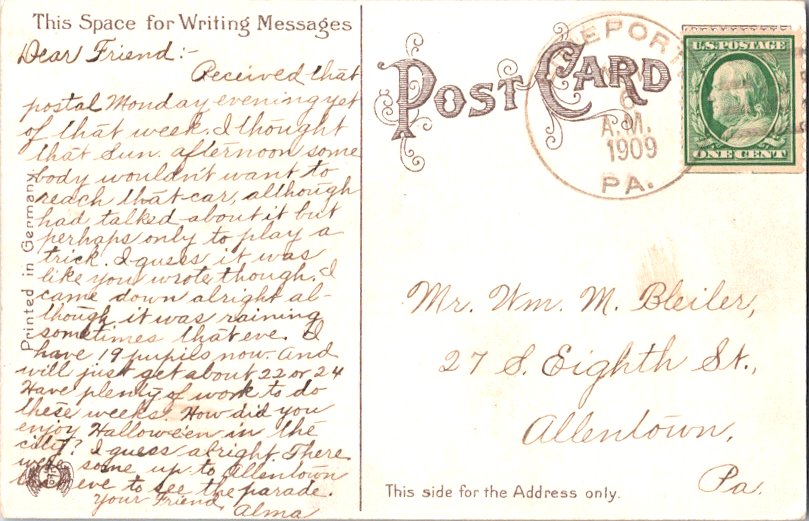 This Space for Writing Messages
Dear Friend:-
Received that
postal Monday evening yet
of that week. I thought
that Sun. afternoon some
body wouldn't want to
reach that car, although
had talked about it but
perhaps only to play a
trick. I guess it was
like you wrote though. I
came down alright al-
though it was raining
sometimes that eve. I
have 19 pupils now. and
will just get about 22 or 24
Have plenty of work to do
these weeks. How did you
enjoy Hallowe'en in the
city? I guess alright. There
were some up to Allentown
eve to see the parade.
Your Friend,
Alma
Printed in Germany
POST CARD
EPORT
6
A.M.
1909
PA.
U.S. POSTAGE
ONE CENT
Mr. Wm. M. Bleiler,
27 S. Eighth St.,
Allentown,
Pa.
This side for the Address only.